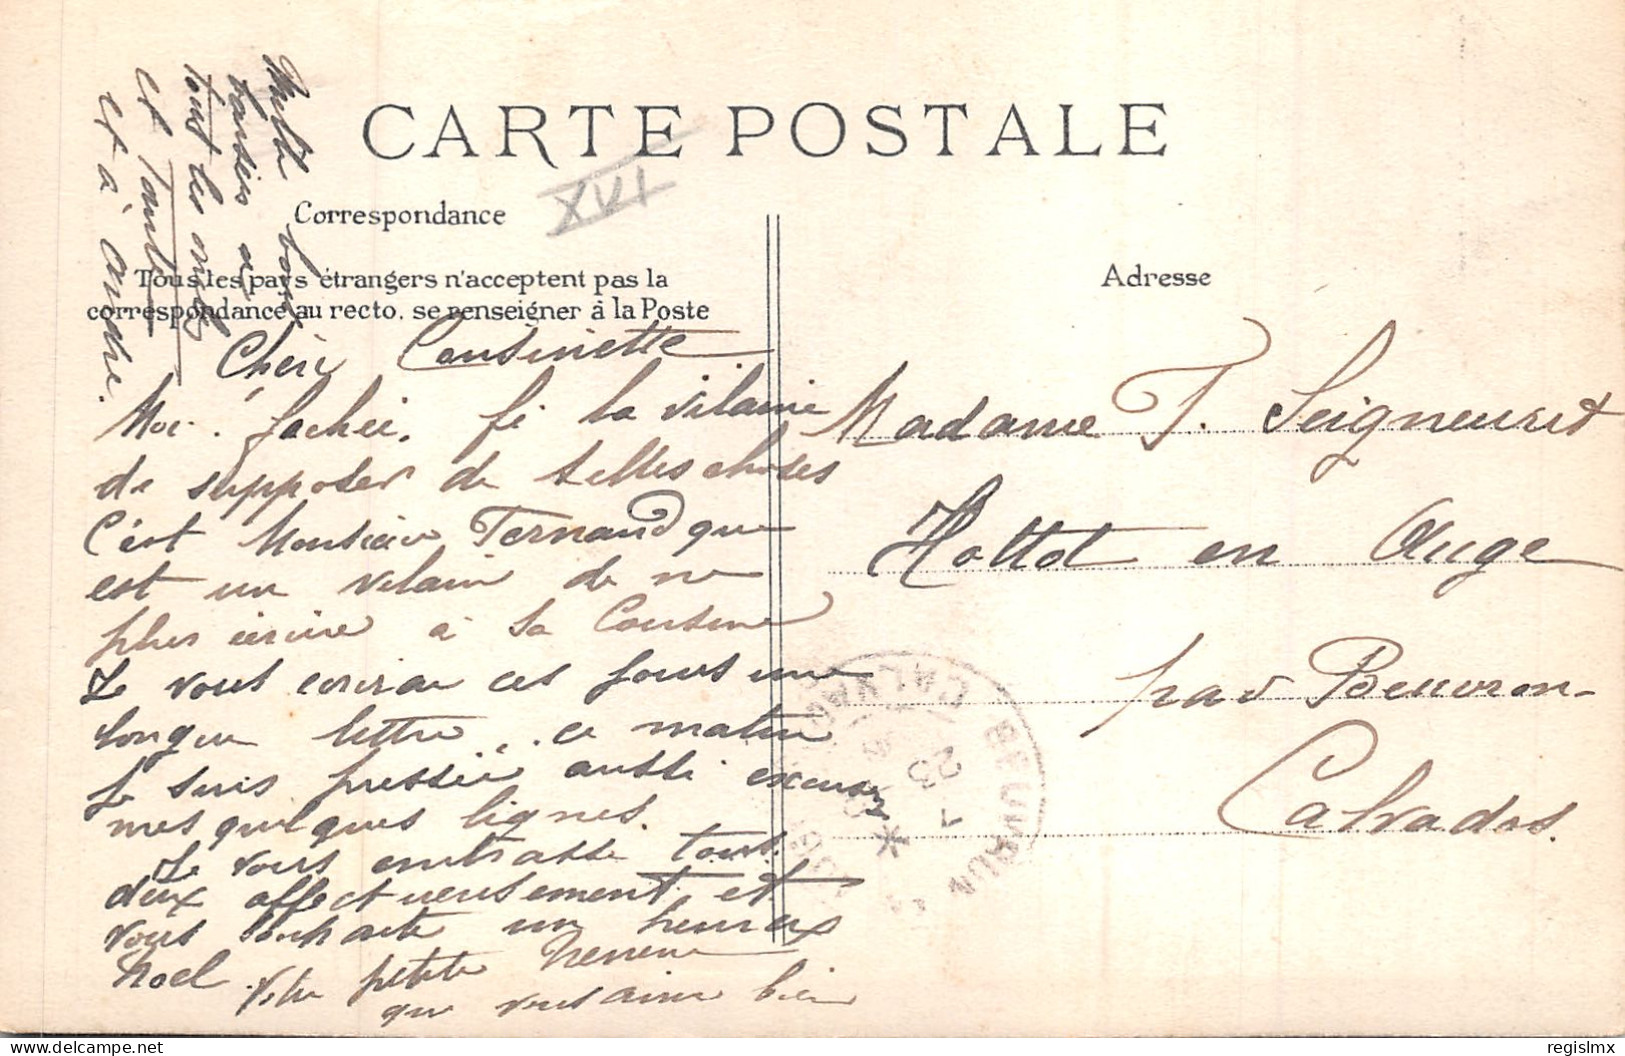 CARTE POSTALE
XVI
Correspondance
Tous les pays étrangers n'acceptent pas la
correspondance au recto. se renseigner à la Poste
Adresse
Mille bons
baisers à
tout les
et Tante
et à André.
Chère Cousinette
Moi! fachée. fi la vilaine
de supposer de telles choses
C'est Monsieur Fernand que
est un vilain de ne
plus écrire à sa Cousine
Je vous écrirai ces jours une
longue lettre, ce matin
je suis pressée aussi excusez
mes quelques lignes.
Je vous embrasse tous
deux affectueusement et
vous souhaite un heureux
Noel. Vtre petite Nenene
que vous aime bien
Madame T. Seigneuret
Hottot en Auge
par Beuvron-
Calvados.
BEUVRON
CALVADOS
23